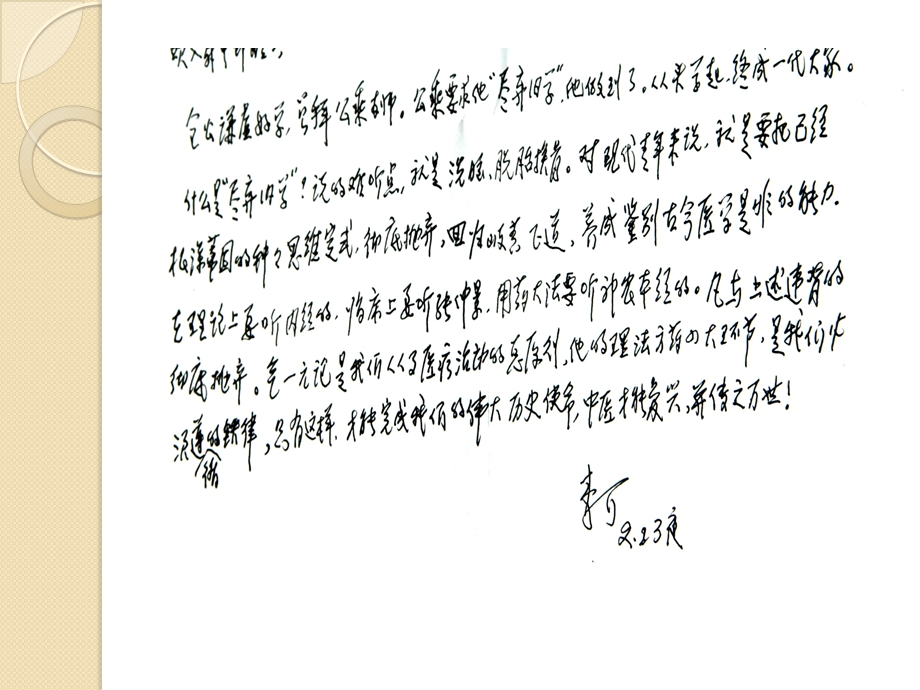 仓公谦虚好学，曾拜公乘为师。公乘要求他“尽弃旧学”，他做到了。从头学起，终成一代大家。
什么是“尽弃旧学”？说的难听点，就是洗脑、脱胎换骨。对现代青年来说，就是要把已经
根深蒂固的种々思维定式，彻底抛弃，回归岐黄正道，养成鉴别古今医学是非的能力。
在理论上要听内经的，临床上要听张仲景，用药大法要听神农本经的。凡与上述违背的
彻底抛弃。气一元论是我们从事医疗活动的总原则，他的理法方药四大环节，是我们必
须遵循的铁律，只有这样，才能完成我们的伟大历史使命，中医才能复兴，并传之万世！
李可
2.23夜